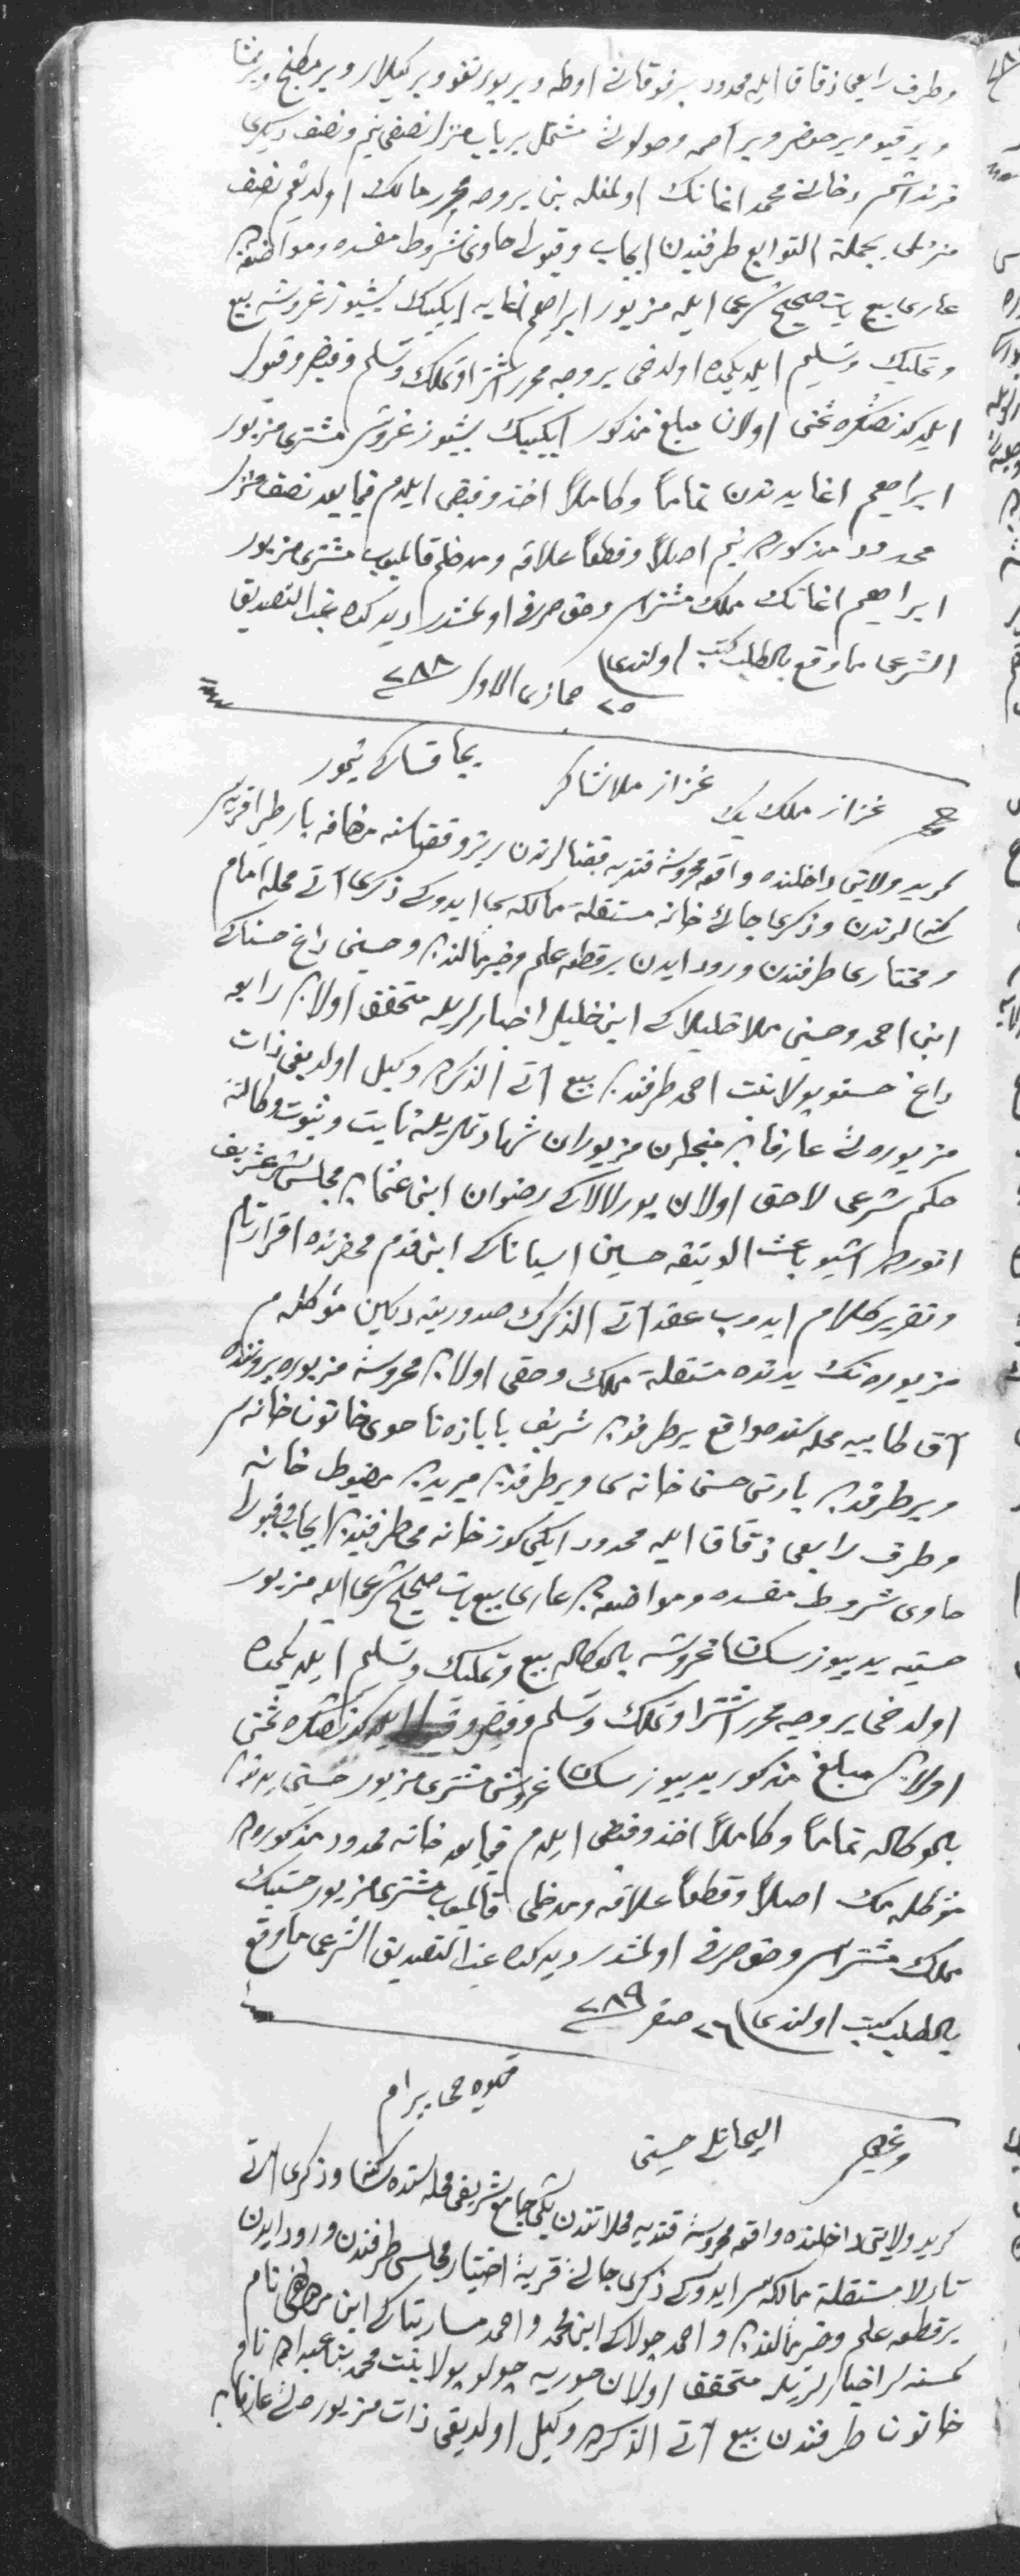 وطرف رابعی زقاق ایله محدود بر فوقانی اوطه وبر یورتغو وبر کیلار وبر مطبخ
وبر قیو وبر حوض وبر اصمه وحولولی مشتمل بر باب منزل نصفی بنم ونصف دیکری
قرنداشم محمد اغانك اولمغله بن بر وجه محرر مالك اولدیغم نصف
منزلی بجملة التوابع طرفیندن ایجاب وقبولی حاوی شروط مفسده ومواضعه‌دن
عاری بیع بات صحیح شرعی ایله مزبور ابراهیم اغایه ایکیبیك بشیوز غروشه بیع
وتملیك وتسلیم ایلدیکمده اولدخی بر وجه محرر اشترا وتملك وتسلم وقبض وقبول
ایلدکدنصکره ثمنی اولان مبلغ مذکور ایکیبیك بشیوز غروشی مشتری مزبور
ابراهیم اغا یدندن تماماً وکاملاً اخذ وقبض ایلدم فیمابعد نصف منزل
محدود مذکورده بنم اصلاً وقطعاً علاقه ومدخلم قالمیوب مشتری مزبور
ابراهیم اغانك ملك مشتراسی وحق صرفی اولمشدر دیدکده غب التصدیق
الشرعی ماوقع بالطلب کتب اولندی
٢٥ جمازی الاول ٢٨٨
غزاز ملك بك غزاز ملا شاکر
کرید ولایتی داخلنده واقع محروسۀ قندیه قضالرندن قضاسنه مضافه قریه‌سی
سکنه‌لرندن وذکری جائی خانه مستقلة مالکه‌سی ایدوکی ذکری آتی محله امام
ومختاری طرفندن ورود ایدن بر قطعه علم وخبر مألندن وحسنی داغ حسناکی
ابن احمد وحسنی ملا خلیلاکی ابن خلیل اخبارلریله متحقق اولان رابعه
داغ حسنوپولا بنت احمد طرفندن بیع آتی الذکره وکیل اولدیغی ذات
مزبوره‌یی عارفان مزبوران شهادتلریله ثابت وثبوت وکالتنه
حکم شرعی لاحق اولان بورلالاکی رضوان ابن عثمان مجلس شرع شریف
انورده اشبو باعث الوثیقه حسین ابن محضرنده اقرار تام
وتقریر کلام ایدوب عقد آتی الذکرك صدورینه دکین مؤکله‌م
مزبوره‌نك یدنده مستقلة ملك وحقی اولان محروسۀ مزبوره دروننده
آق طابیه محله‌سنده واقع بر طرفدن شریف خاتون خانه‌سی
وبر طرفدن حسن خانه‌سی وبر طرفدن میریدن مضبوط خانه
وطرف رابعی زقاق ایله محدود ایکی کوز خانه‌یی طرفیندن ایجاب وقبولی
حاوی شروط مفسده ومواضعه‌دن عاری بیع بات صحیح شرعی ایله مزبور
حسینه یدییوز سکسان غروشه بالوکاله بیع وتملیك وتسلیم ایلدیکمده
اولدخی بر وجه محرر اشترا وتملك وتسلم وقبض وقبول ایلدکدنصکره ثمنی
اولان مبلغ مذکور یدییوز سکسان غروشی مشتری مزبور حسین یدندن
بالوکاله تماماً وکاملاً اخذ وقبض ایلدم فیمابعد خانه محدود مذکورده
مؤکله‌مك اصلاً وقطعاً علاقه ومدخلی قالمیوب مشتری مزبور حسینك
ملك مشتراسی وحق صرفی اولمشدر دیدکده غب التصدیق الشرعی ماوقع
بالطلب کتب اولندی ٢٦ صفر ٢٨٩
قهوه‌جی بیرام
حسنی
کرید ولایتی داخلنده واقع محروسۀ قندیه محلاتندن یکی جامع شریفی محله‌سنده سکنا وذکری آتی
تارلا مستقلة مالکه‌سی ایدوکی ذکری جائی قریه اختیار مجلسی طرفندن ورود ایدن
بر قطعه علم وخبر مألندن واحمد چولاکی ابن محمد واحمد ابن مصطفی نام
کمسنه‌لر اخبارلریله متحقق اولان حوریه چولوپولا بنت محمد بن عبدالله نام
خاتون طرفندن بیع آتی الذکره وکیل اولدیغی ذات مزبوره‌یی عارفان